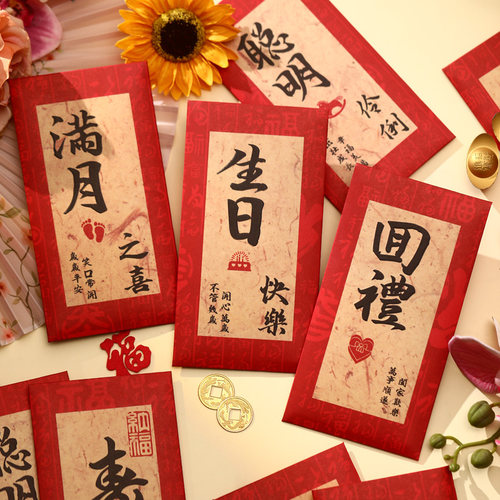 滿月
之喜
笑口常開
歲歲平安
生日
快樂
開心萬歲
不管幾歲
聰明
伶俐
回禮
闔家歡樂
萬事順遂
聰明
納福
壽
福